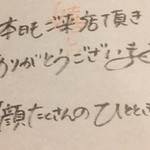 本日もご来店頂き
ありがとうございます
顔たくさんのひととき